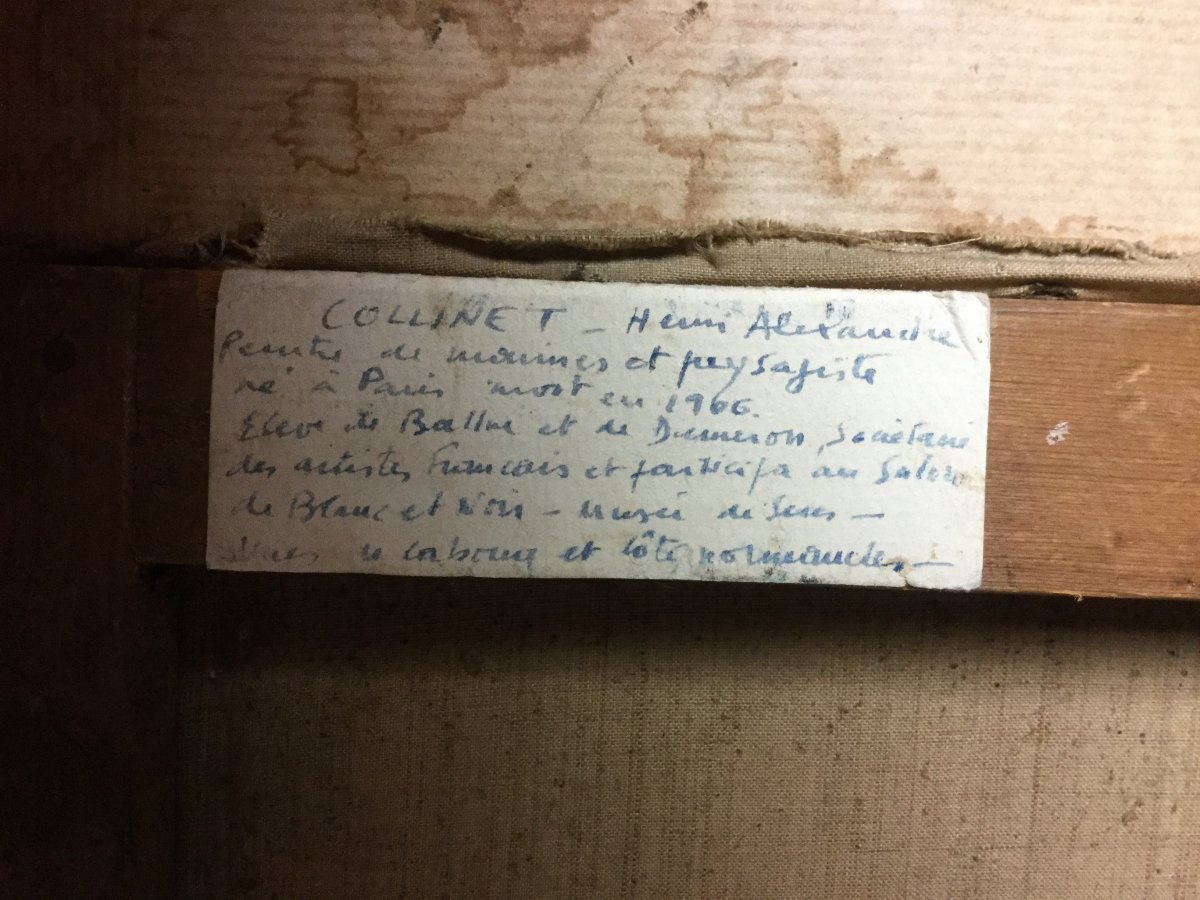 COLLINET - Henri Alexandre
Peintre de marines et paysagiste
né à Paris mort en 1906.
Elève de Ballue et de Dameron, Sociétaire
des artistes Francais et participa au Salon
de Blanc et Noir - Musée de Sens -
de Cabourg et Côte normande. -